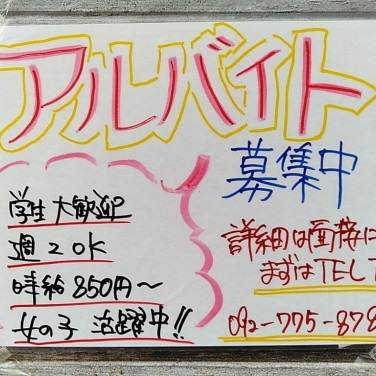 アルバイト
募集中
学生大歓迎
週2OK
時給850円〜
女の子活躍中!!
詳細は面接に
まずはTEL
092-775-878